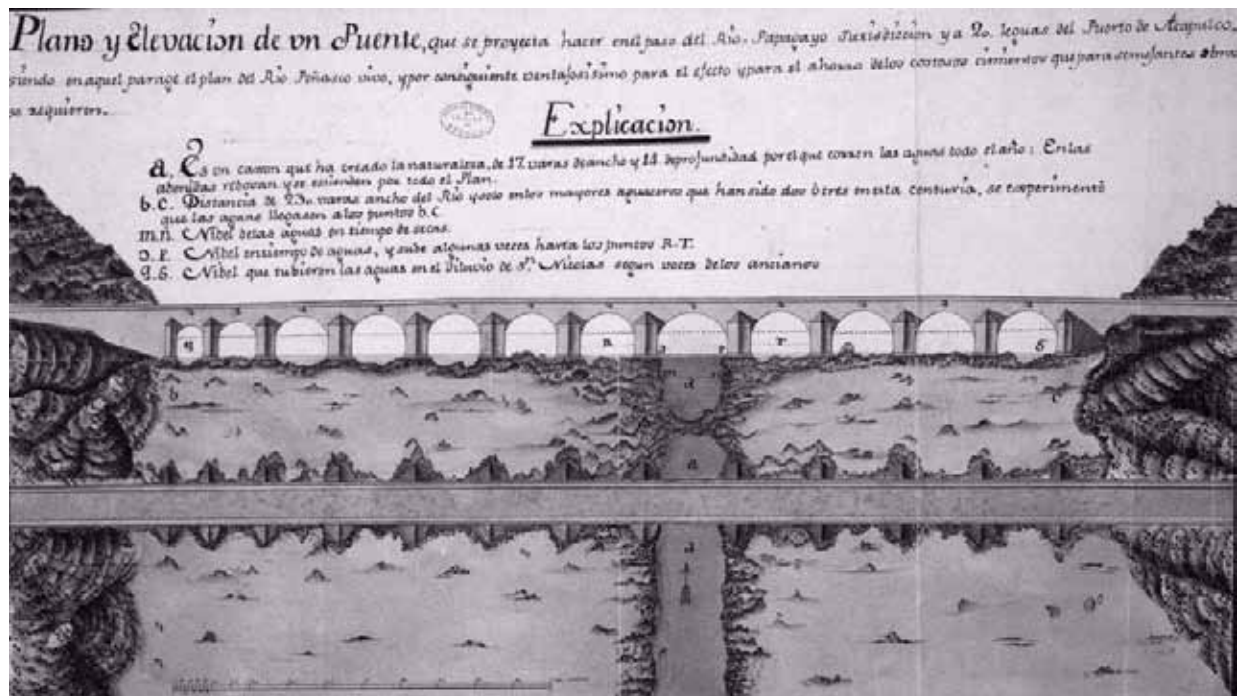 Plano y Elevacion de vn Puente, que se proyecta hacer enel paso del Rio Papagayo Jurisdiccion y a 20. leguas del Puerto de Acapulco,
siendo en aquel parage el plan del Rio Peñasco vivo, y por consiguiente ventajosisimo para el efecto y para el ahorro delos costosos cimientos que para semejantes obras
se requieren.
Explicacion.
a. Es un canon que ha creado la naturaleza, de 17 varas de ancho y 18 de profundidad por el que corren las aguas todo el año: En las
abenidas rebosan y se estienden por todo el Plan.
b.c. Distancia de 230 varas ancho del Rio y solo en los mayores aguaceros que han sido dos ó tres en esta centuria, se experimentó
que las aguas llegasen a los puntos b.c.
m.n. Nibel delas aguas en tiempo de secas.
o.p. Nibel en tiempo de aguas, y sube algunas veces hasta los puntos R.T.
q.s. Nibel que tubieron las aguas en el Diluvio de Sn. Nicolas segun voces delos ancianos
q
R
r
s
b
m
a
c
a
a